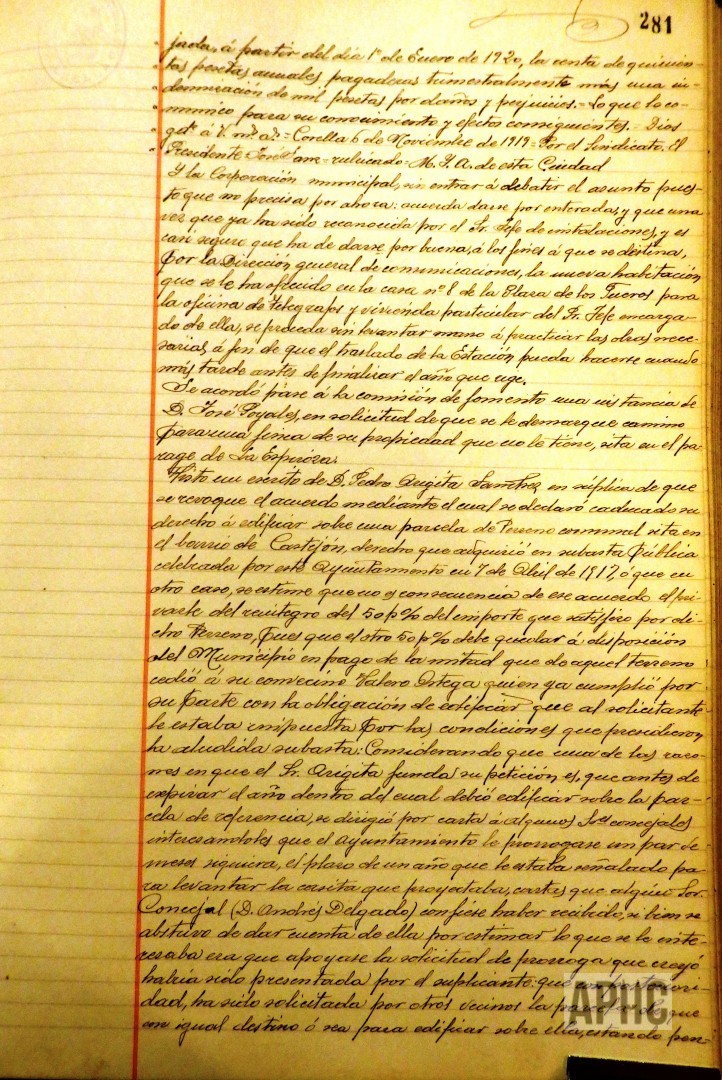 281
jada, á partir del dia 1º de Enero de 1920, la renta de quinien-
" tas pesetas anuales pagaderas trimestralmente más una in-
" demnización de mil pesetas por daños y perjuicios.= Lo que le co-
" munico para su conocimiento y efectos consiguientes.= Dios
" gde. á V. m.s a.s = Corella 6 de Noviembre de 1919= Por el Sindicato. El
" Presidente José = rubricado= M. Y. A. de esta Ciudad
Y la Corporación municipal, sin entrar á debatir el asunto pues-
to que no precisa por ahora: acuerda darse por enterada, y que una
vez que ya ha sido reconocida por el Sr. Jefe de instalaciones, y es
casi seguro que ha de darse por buena, á los fines á que se destina,
por la Dirección general de comunicaciones, la nueva habitación
que se le ha ofrecido en la casa nº 8 de la Plaza de los Fueros para
la oficina de telegrafos y vivienda particular del Sr. Jefe encarga-
do de ella, se proceda sin levantar mano á practicar las obras nece-
sarias, á fin de que el traslado de la Estación pueda hacerse cuando
más tarde antes de finalizar el año que rige.
Se acordó pase á la comisión de fomento una instancia de
D. José Poyales, en solicitud de que se le demarque camino
para una finca de su propiedad que no le tiene, sita en el pa-
rage de La Espinosa.
Visto un escrito de D. Pedro Arigita Sanchez en súplica de que
se revoque el acuerdo mediante el cual se declaró caducado su
derecho á edificar sobre una parcela de terreno comunal sita en
el barrio de Castejón, derecho que adquirió en subasta pública
celebrada por este Ayuntamiento en 7 de Abril de 1917, ó que en
otro caso, se estime que no es consecuencia de ese acuerdo el pri-
varle del reintegro del 50 p% del importe que satisfizo por di-
cho terreno, pues que el otro 50 p% debe quedar á disposición
del Municipio en pago de la mitad que de aquel terreno
cedió á su convecino Valero Ortega quien ya cumplió por
su parte con la obligación de edificar que al solicitante
le estaba impuesta por las condiciones que presidieron
la aludida subasta: Considerando que una de las razo-
nes en que el Sr. Arigita funda su petición es, que antes de
expirar el año dentro del cual debió edificar sobre la par-
cela de referencia, se dirigió por carta á algunos Sres concejales
interesandoles que el ayuntamiento le prorrogase un par de
meses siquiera, el plazo de un año que le estaba señalado pa-
ra levantar la casita que proyectaba, cartas que algún Sor.
Concejal (D. Andrés Delgado) confiese haber recibido, si bien se
abstuvo de dar cuenta de ella por estimar lo que se le inte-
resaba era que apoyase la solicitud de prorroga que creyó
habría sido presentada por el suplicante: que
dad, ha sido solicitada por otros vecinos la
con igual destino ó sea para edificar sobre ella, estando pen-
APHC